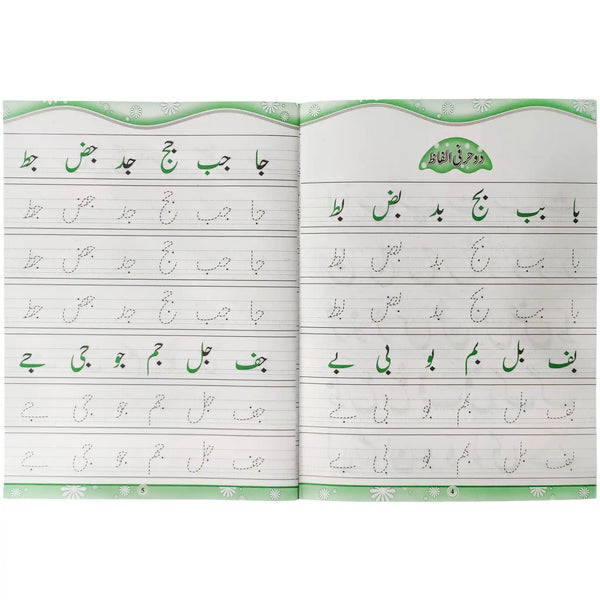 دو حرفی الفاظ
با بب بج بد بض بط
با بب بج بد بض بط
با بب بج بد بض بط
بف بل بم بو بی بے
بف بل بم بو بی بے
بف بل بم بو بی بے
4
جا جب جج جد جض جط
جا جب جج جد جض جط
جا جب جج جد جض جط
جا جب جج جد جض جط
جف جل جم جو جی جے
جف جل جم جو جی جے
جف جل جم جو جی جے
5